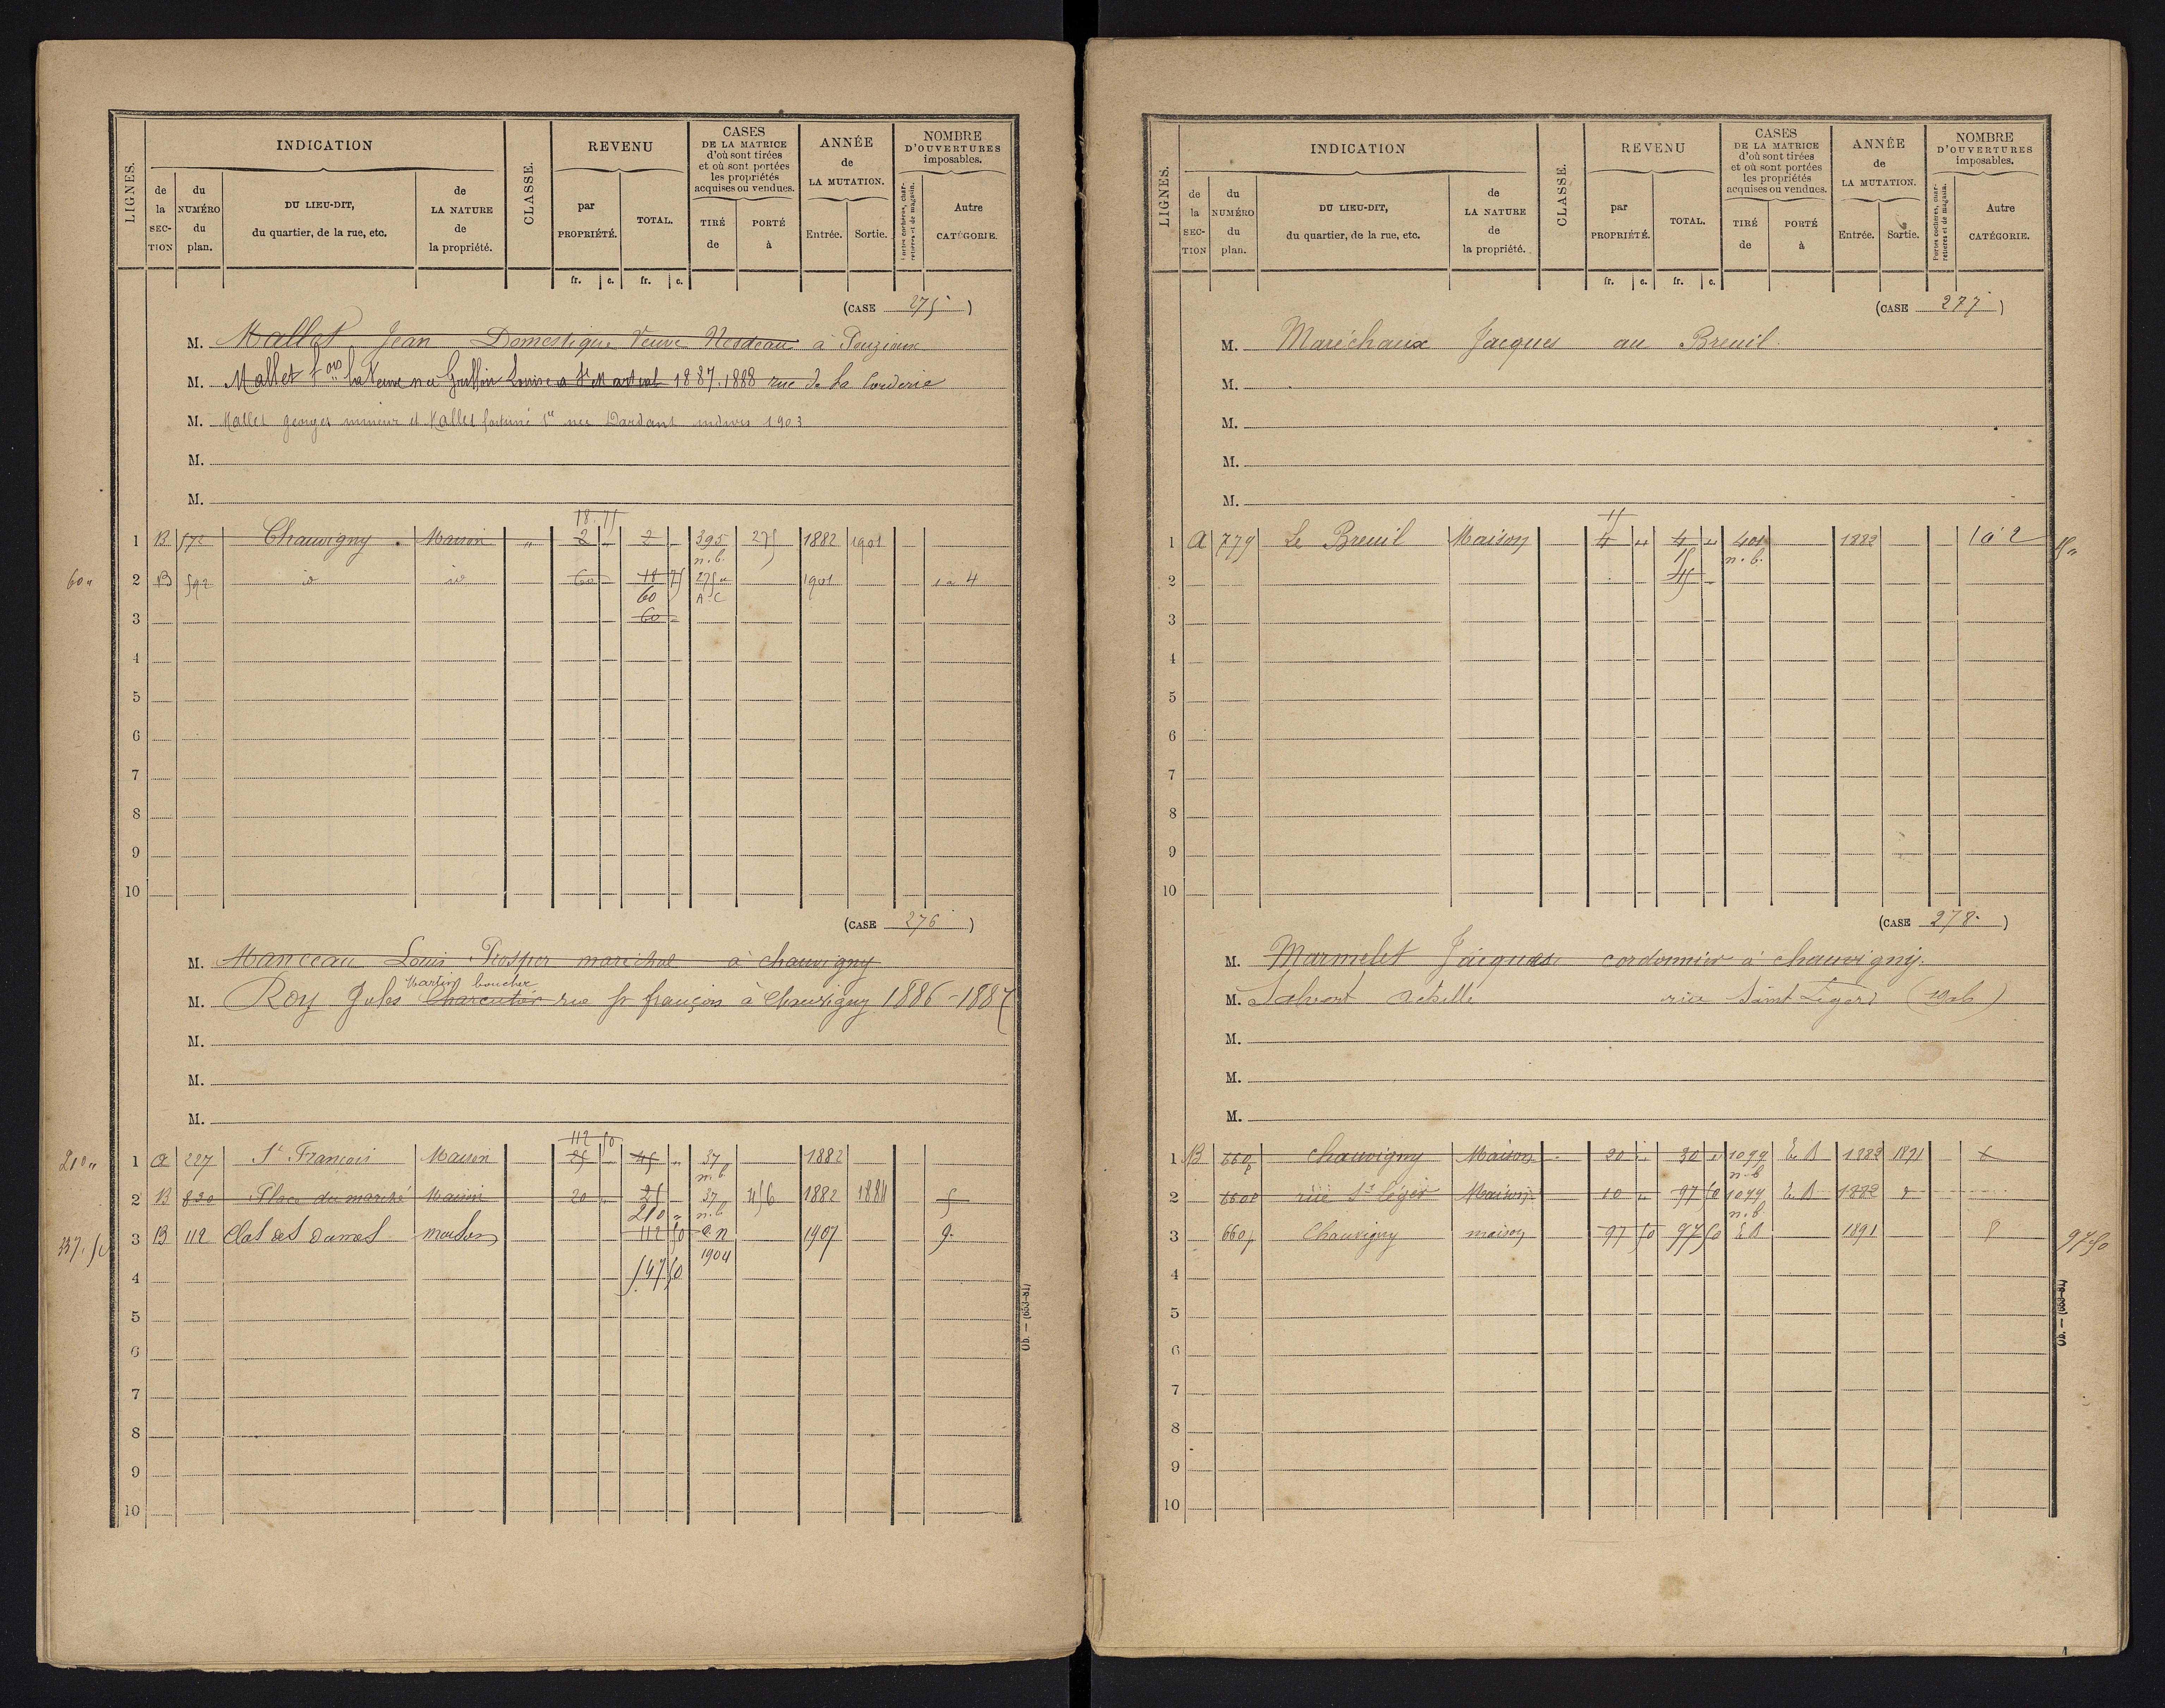 LIGNES.
INDICATION
de la SECTION
du NUMÉRO du plan.
DU LIEU-DIT, du quartier, de la rue, etc.
de LA NATURE de la propriété.
CLASSE.
REVENU
par PROPRIÉTÉ.
TOTAL.
fr. c. fr. c.
CASES DE LA MATRICE d'où sont tirées et où sont portées les propriétés acquises ou vendues.
TIRÉ de
PORTÉ à
ANNÉE de LA MUTATION.
Entrée. Sortie.
NOMBRE D'OUVERTURES imposables.
Portes cochères, charretières et de magasin.
Autre CATÉGORIE.
(CASE 275)
M. Mallet Jean Domestique Veuve Nesdeau à Pouzioux
M. Mallet La Veuve née Louise a St Martial 1887.1888 rue de la Corderie
M. Mallet georges mineur et Mallet fortuné née Dardant indivis 1903
M.
M.
18.75
1 B 572 Chauvigny Maison " 2 2 395 275 1882 1901
n.b.
60 " 2 B 592 id id 60 18 75 275 1901 1 à 4
60 A.C
3 60
4
5
6
7
8
9
10
(CASE 276)
M. Manceau Louis Prosper marechal à chauvigny
Martin boucher
M. Roy Jules Charcutier rue St françois à Chauvigny 1886-1887
M.
M.
M.
112 50
210 " 1 A 227 St François Maison 25 45 " 37 1882
n.b
2 B 830 Place du marché Maison 20 " 25 37 456 1882 1884 5
210 " n.b
337.50 3 B 112 Clos des Dames maison 112 50 C.N 1907 9
1904
4 547 50
5
6
7
8
9
10
Ob. — (653-81)
LIGNES.
INDICATION
de la SECTION
du NUMÉRO du plan.
DU LIEU-DIT, du quartier, de la rue, etc.
de LA NATURE de la propriété.
CLASSE.
REVENU
par PROPRIÉTÉ.
TOTAL.
fr. c. fr. c.
CASES DE LA MATRICE d'où sont tirées et où sont portées les propriétés acquises ou vendues.
TIRÉ de
PORTÉ à
ANNÉE de LA MUTATION.
Entrée. Sortie.
NOMBRE D'OUVERTURES imposables.
Portes cochères, charretières et de magasin.
Autre CATÉGORIE.
(CASE 277)
M. Maréchaux Jacques au Breuil
M.
M.
M.
M.
1 A 779 Le Breuil Maison 4 " 4 " 401 1882 1 à 2
15 n.b.
2
3
4
5
6
7
8
9
10
(CASE 278)
M. Marmelet Jacques cordonnier à chauvigny
M. Salvant Achille rue Saint Léger
M.
M.
M.
1 B 660p Chauvigny Maison 20 " 30 " 1099 E.B 1882 1891 6
n.b
2 660p rue St Léger Maison 10 " 97 50 1099 E.B 1882
n.b
3 660p Chauvigny maison 97 50 97 50 E.B 1891 8 97.50
4
5
6
7
8
9
10
Ob. — (653-81)